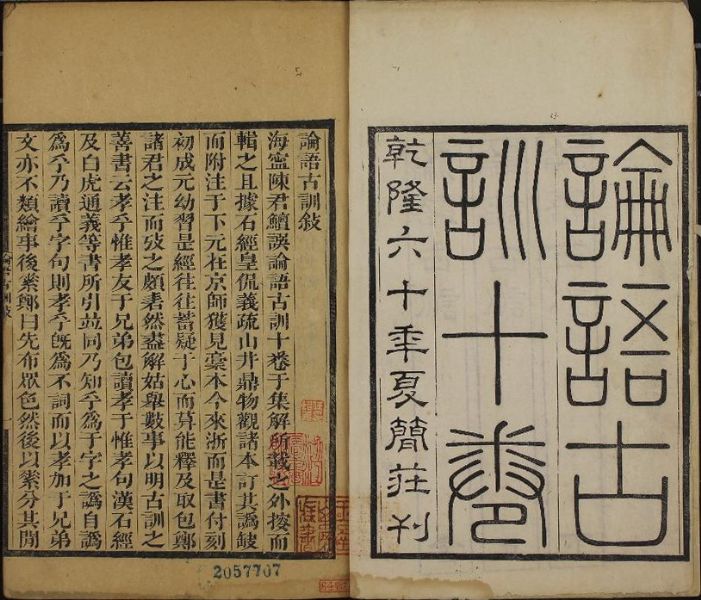 論語古
訓十卷
乾隆六十年夏簡莊刊
論語古訓敍
海寧陳君鱣譔論語古訓十卷于集解所載之外搜而
輯之且據石經皇侃義疏山井鼎物觀諸本訂其譌缺
而附注于下元在京師獲見稾本今來浙而是書付刻
初成元幼習是經往往蓄疑于心而莫能釋及取包鄭
諸君之注而攷之頗然解姑舉數事以明古訓之
善書云孝乎惟孝友于兄弟包讀孝于惟孝句漢石經
及白虎通義等書所引竝同乃知乎爲于字之譌自譌
爲乎乃讀乎字句則孝乎旣爲不詞而以孝加于兄弟
文亦不類繪事後素鄭曰先布眾色然後以素分其閒
論語古訓敍
2057707